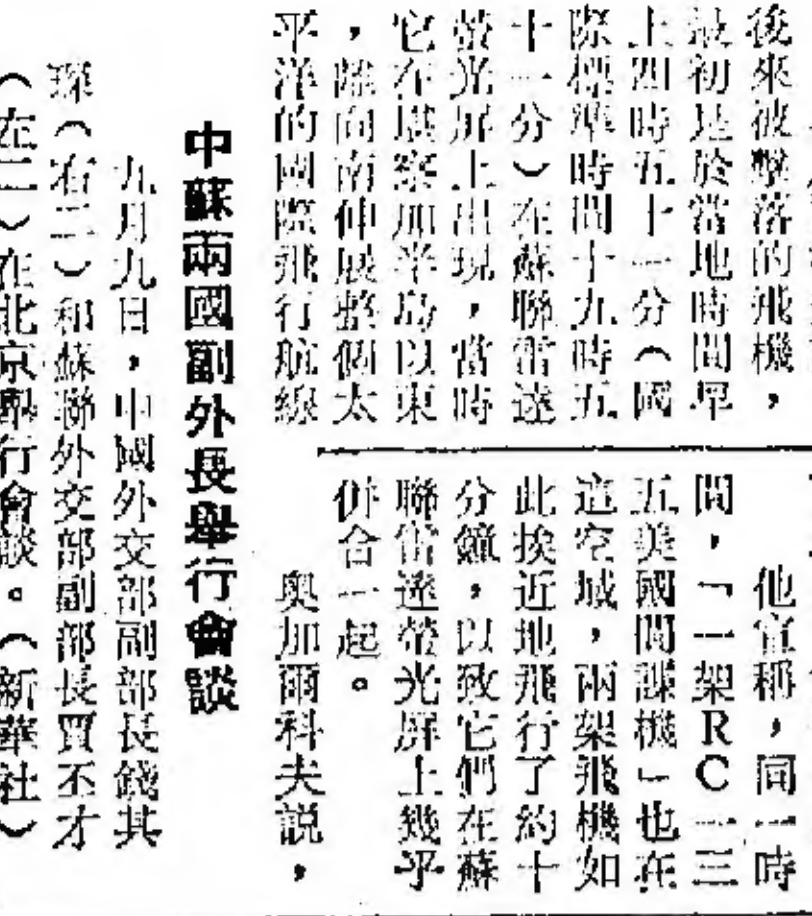 後來被擊落的飛機，
最初是於當地時間早
上四時五十一分（國
際標準時間十九時五
十一分）在蘇聯雷達
螢光屏上出現，當時
它在堪察加半島以東
，離向南伸展整個太
平洋的國際飛行航線
他宣稱，同一時
間，「一架RC一三
五美國間諜機」也在
這空域，兩架飛機如
此挨近地飛行了約十
分鐘，以致它們在蘇
聯雷達螢光屏上幾乎
併合一起。
奧加爾科夫説，
中蘇兩國副外長舉行會談
九月九日，中國外交部副部長錢其
琛（右二）和蘇聯外交部副部長賈丕才
（在二）在北京舉行會談。（新華社）